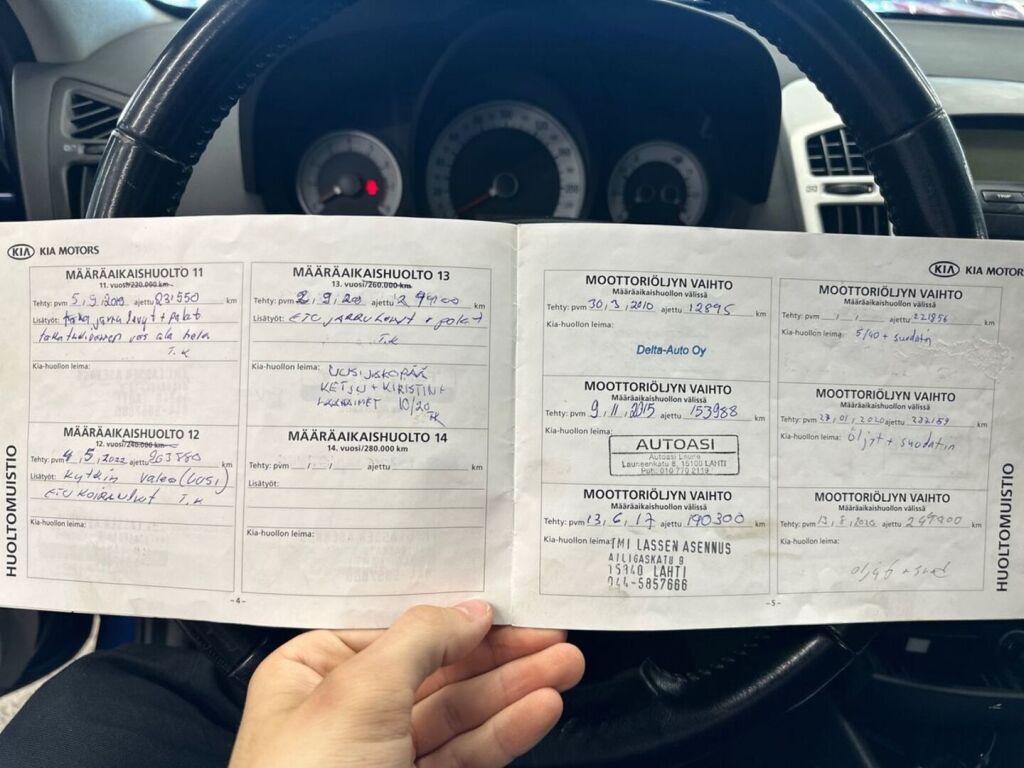 KIA MOTORS
MÄÄRÄAIKAISHUOLTO 11
11. vuosi/220.000 km
Tehty: pvm 5,9,20 ajettu 231550 km
Lisätyöt: jarru levyt + palat
T.K
Kia-huollon leima:
MÄÄRÄAIKAISHUOLTO 12
12. vuosi/240.000 km
Tehty: pvm 4,5,2022 ajettu 263880 km
Lisätyöt: Kytkin valeo (UUSI)
ETU T.K
Kia-huollon leima:
MÄÄRÄAIKAISHUOLTO 13
13. vuosi/260.000 km
Tehty: pvm 2,9,20 ajettu km
Lisätyöt: ETU JARRU levyt + palat
T.K
Kia-huollon leima: UUSI JAKOPÄÄ
KETJU + KIRISTIN +
LAAKERIMET 10/20
TK
MÄÄRÄAIKAISHUOLTO 14
14. vuosi/280.000 km
Tehty: pvm / / ajettu km
Lisätyöt:
Kia-huollon leima:
HUOLTOMUISTIO
-4-
KIA MOTORS
MOOTTORIÖLJYN VAIHTO
Määräaikaishuollon välissä
Tehty: pvm 30,3,2010 ajettu 12895 km
Kia-huollon leima:
Delta-Auto Oy
MOOTTORIÖLJYN VAIHTO
Määräaikaishuollon välissä
Tehty: pvm 9,11,2015 ajettu 153988 km
Kia-huollon leima:
AUTOASI
Autoasi Laune
Launeenkatu 8, 15100 LAHTI
Puh. 010 770 2119
MOOTTORIÖLJYN VAIHTO
Määräaikaishuollon välissä
Tehty: pvm 13,6,17 ajettu 190300 km
Kia-huollon leima:
TMI LASSEN ASENNUS
AILIGASKATU 9
15940 LAHTI
044-5857666
MOOTTORIÖLJYN VAIHTO
Määräaikaishuollon välissä
Tehty: pvm / / ajettu 221856 km
Kia-huollon leima: 5/40 + suodatin
MOOTTORIÖLJYN VAIHTO
Määräaikaishuollon välissä
Tehty: pvm 27,01,2020 ajettu 237159 km
Kia-huollon leima: Öljyt + suodatin
MOOTTORIÖLJYN VAIHTO
Määräaikaishuollon välissä
Tehty: pvm 13,8,2020 ajettu km
Kia-huollon leima:
öljyt + suod
HUOLTOMUISTIO
-5-
TRIP